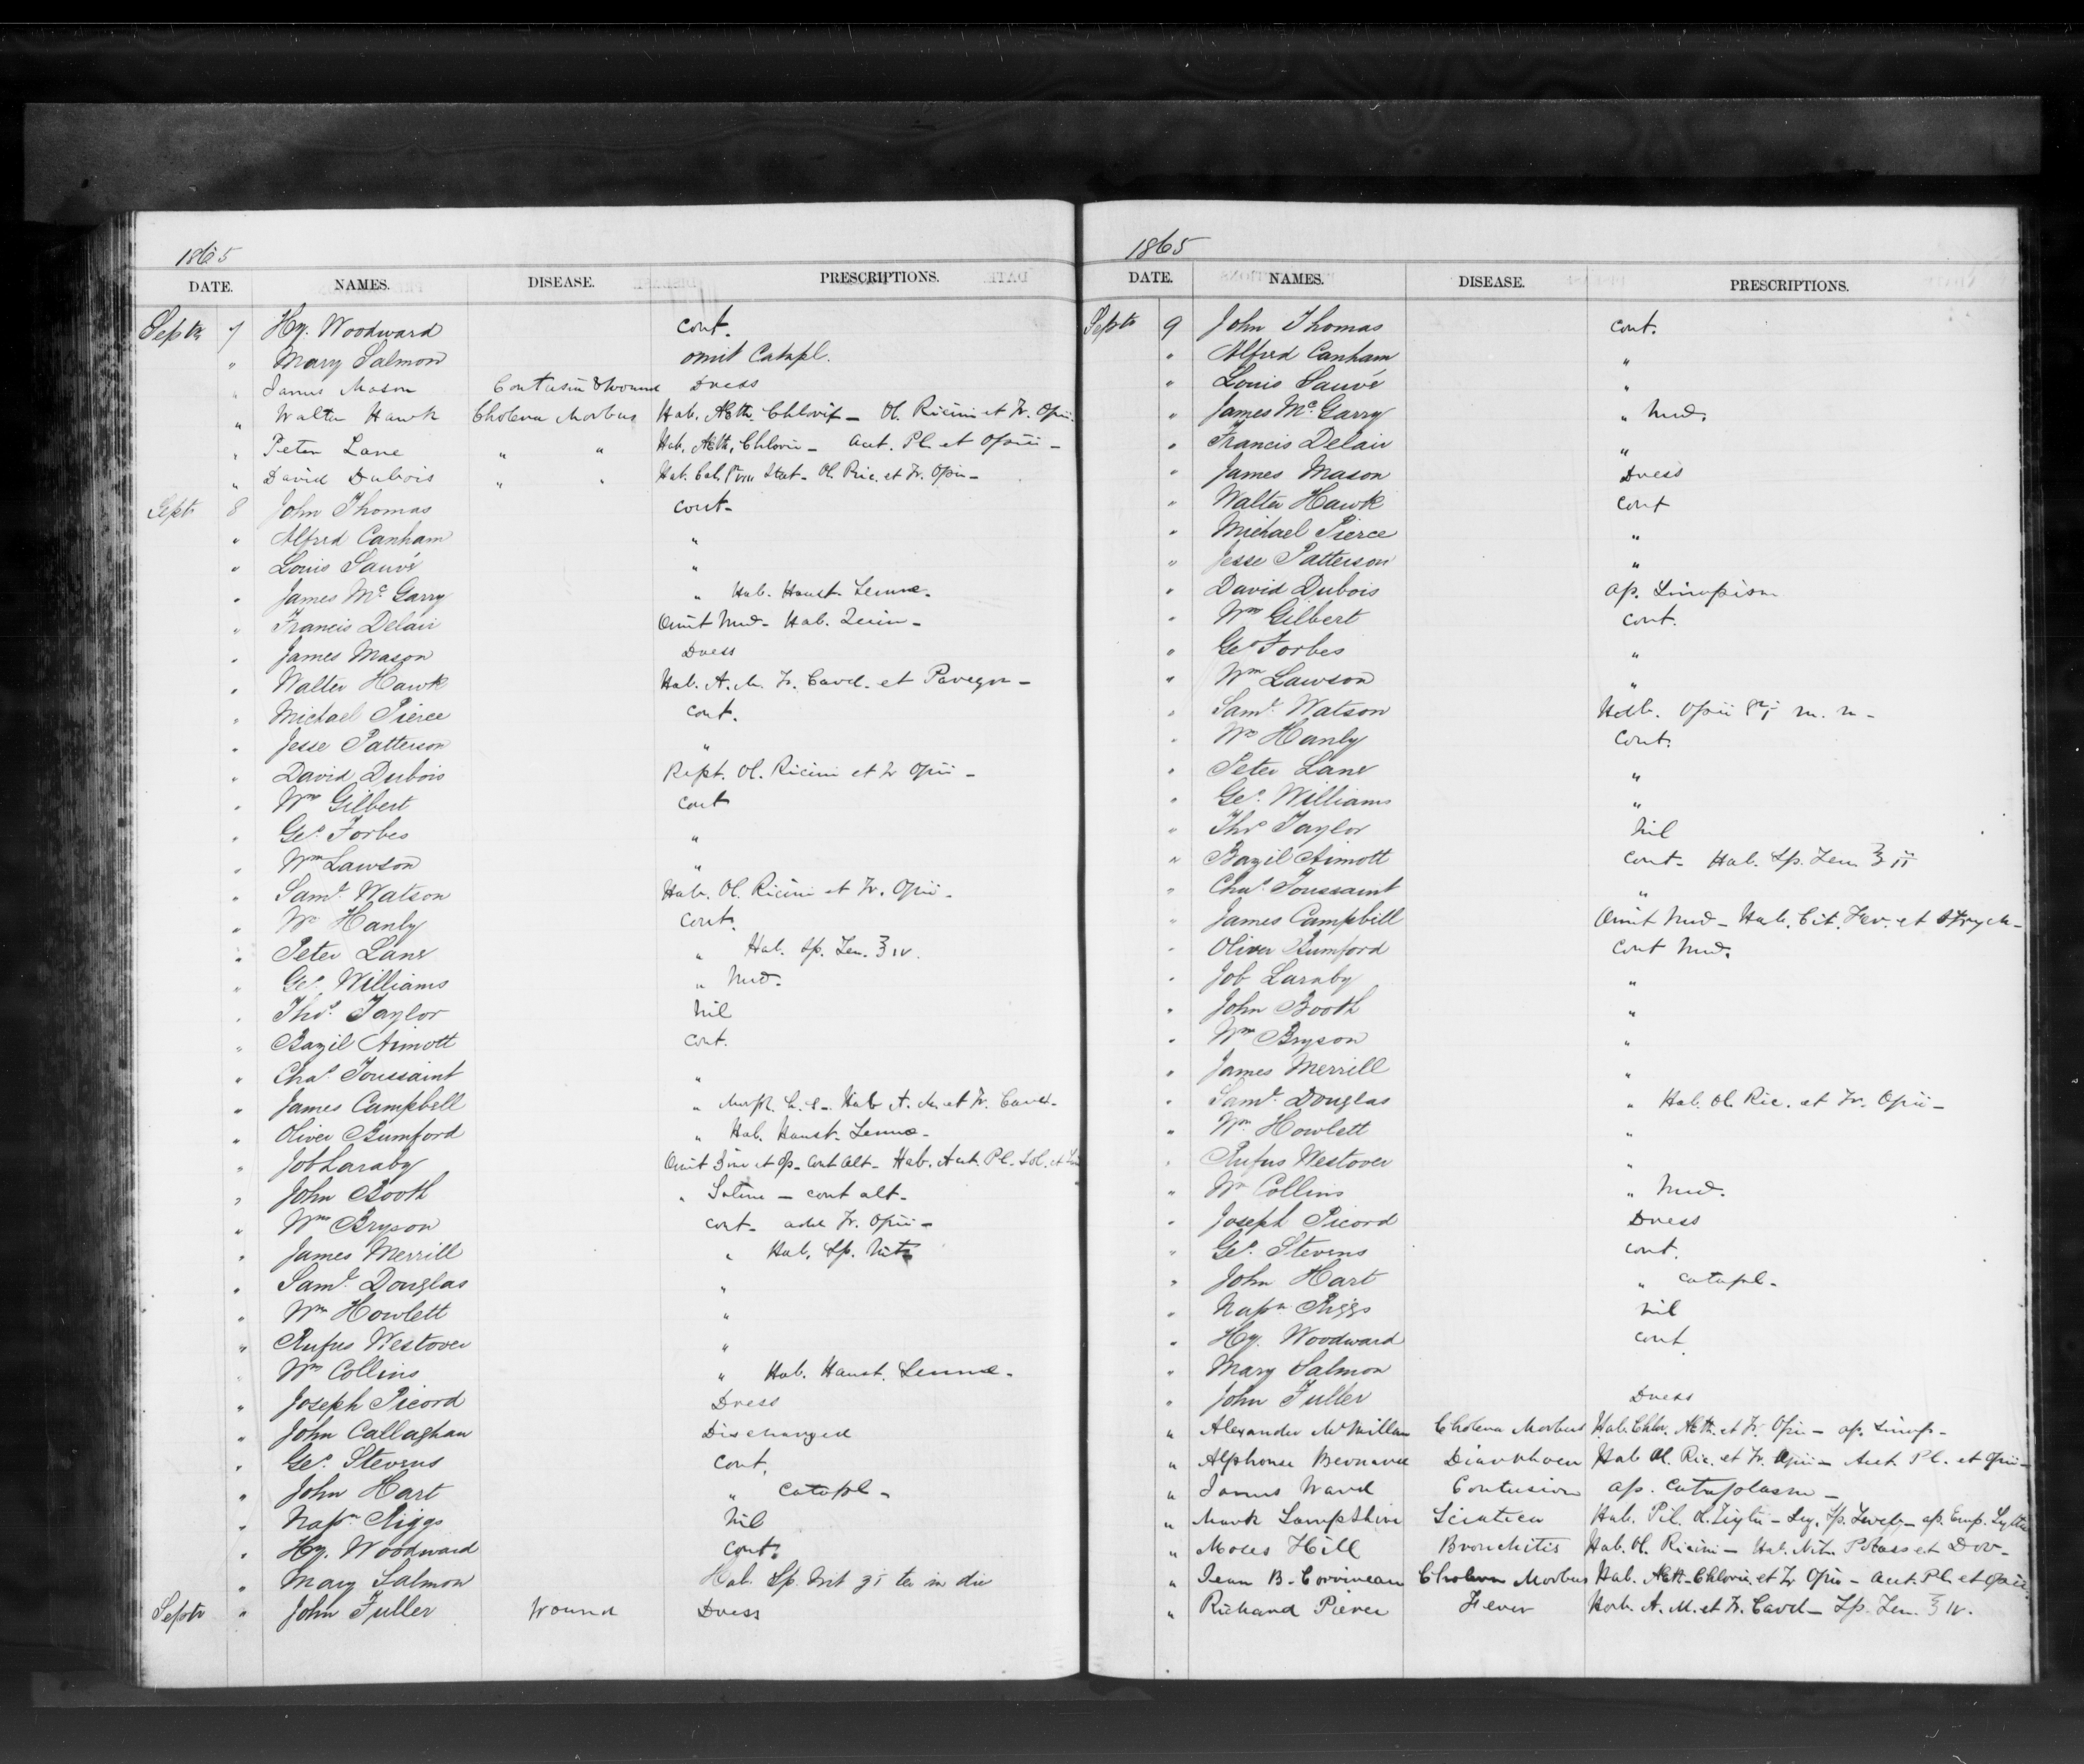 1865
DATE. NAMES. DISEASE. PRESCRIPTIONS.
Septr 7 Hy. Woodward cont.
" Mary Salmon omit Catapl.
" James Mason Contusion & Wound Dress
" Walter Hawk Cholera Morbus Hab. Æth. Chlorif — Ol. Ricini et Tr. Opii.
" Peter Lane " " Hab. Æth. Chloric — Acet. Pl. et Opii —
" David Dubois " " Hab. Cal. Stat - Ol. Ric. et Tr. Opii —
Septr 8 John Thomas cont-
" Alfred Canham "
" Louis Sauvé "
" James Mc Garry " Hab. Haust. Sennæ.
" Francis Delair Omit Med- Hab. Quin-
" James Mason Dress
" Walter Hawk Hab. A. M. Tr. Card. et Paregor —
" Michael Pierce cont.
" Jesse Patterson "
" David Dubois Rept. Ol. Ricini et Tr Opii —
" Wm Gilbert cont
" Geo. Forbes "
" Wm Lawson "
" Saml. Watson Hab. Ol. Ricini et Tr. Opii -
" Wm Hanly cont.
" Peter Lane " Hab. Sp. Ten. ℥ iv.
" Geo. Williams " Med.
" Thos. Taylor Nil
" Bazil Aimott cont.
" Chas. Toussaint "
" James Campbell " Morph. h. s-. Hab A. M. et Tr. Card-
" Oliver Bumford " Hab. Haust. Sennæ-
" Job Laraby Omit et Op- Cont Alt- Hab. Acet. Pl. Sol. et
" John Booth " — cont alt-
" Wm Bryson cont- add Tr. Opii —
" James Merrill " Hab. Sp. Nit
" Saml. Douglas "
" Wm Howlett "
" Rufus Westover "
" Wm Collins " Hab. Haust. Sennæ.
" Joseph Picord Dress
" John Callaghan Discharged
" Geo. Stevens cont.
" John Hart " Catapl-
" Napn Riggs Nil
" Hy. Woodward cont.
" Mary Salmon Hab. Sp. Nit ʒi ter in die
Septr " John Fuller Wound Dress
1865
DATE. NAMES. DISEASE. PRESCRIPTIONS.
Septr 9 John Thomas cont.
" Alfred Canham "
" Louis Sauvé "
" James Mc Garry " Med.
" Francis Delair "
" James Mason Dress
" Walter Hawk cont
" Michael Pierce "
" Jesse Patterson "
" David Dubois ap. Sinapism
" Wm Gilbert cont.
" Geo Forbes "
" Wm Lawson "
" Saml. Watson Hab. Opii gr i m. n-
" Wm Hanly cont.
" Peter Lane "
" Geo. Williams "
" Thos Taylor Nil
" Bazil Aimott cont- Hab. Sp. Ten ℥ ii
" Chas. Toussaint "
" James Campbell Omit Med- Hab. Cit. Fer. et Strych-
" Oliver Bumford Cont Med.
" Job Laraby "
" John Booth "
" Wm Bryson "
" James Merrill "
" Saml. Douglas " Hab. Ol. Ric. et Tr. Opii —
" Wm Howlett "
" Rufus Westover "
" Wm Collins " Med.
" Joseph Picord Dress
" Geo. Stevens cont.
" John Hart " catapl-
" Napn Riggs nil
" Hy. Woodward cont.
" Mary Salmon
" John Fuller Dress
" Alexander McMillan Cholera Morbus Hab. Chlor. Æth. et Tr. Opii — ap. Sinap-
" Alphonse Diarrhoea Hab Ol. Ric. et Tr. Opii — Acet Pl. et Opii —
" James Ward Contusion ap. Cataplasm —
" Mark Lampshire Sciatica Hab. Pil. Ol. Tiglii — ap. Emp. Lyttæ
" Moses Hill Bronchitis Hab. Ol. Ricini — Hab. Nit. Potass et Dov-
" Jean B. Corriveau Cholera Morbus Hab. Æth. Chloric. et Tr Opii — Acet. Pl. et Opii
" Richard Pierce Fever Hab. A. M. et Tr. Card — Sp. Ten. ℥ iv.